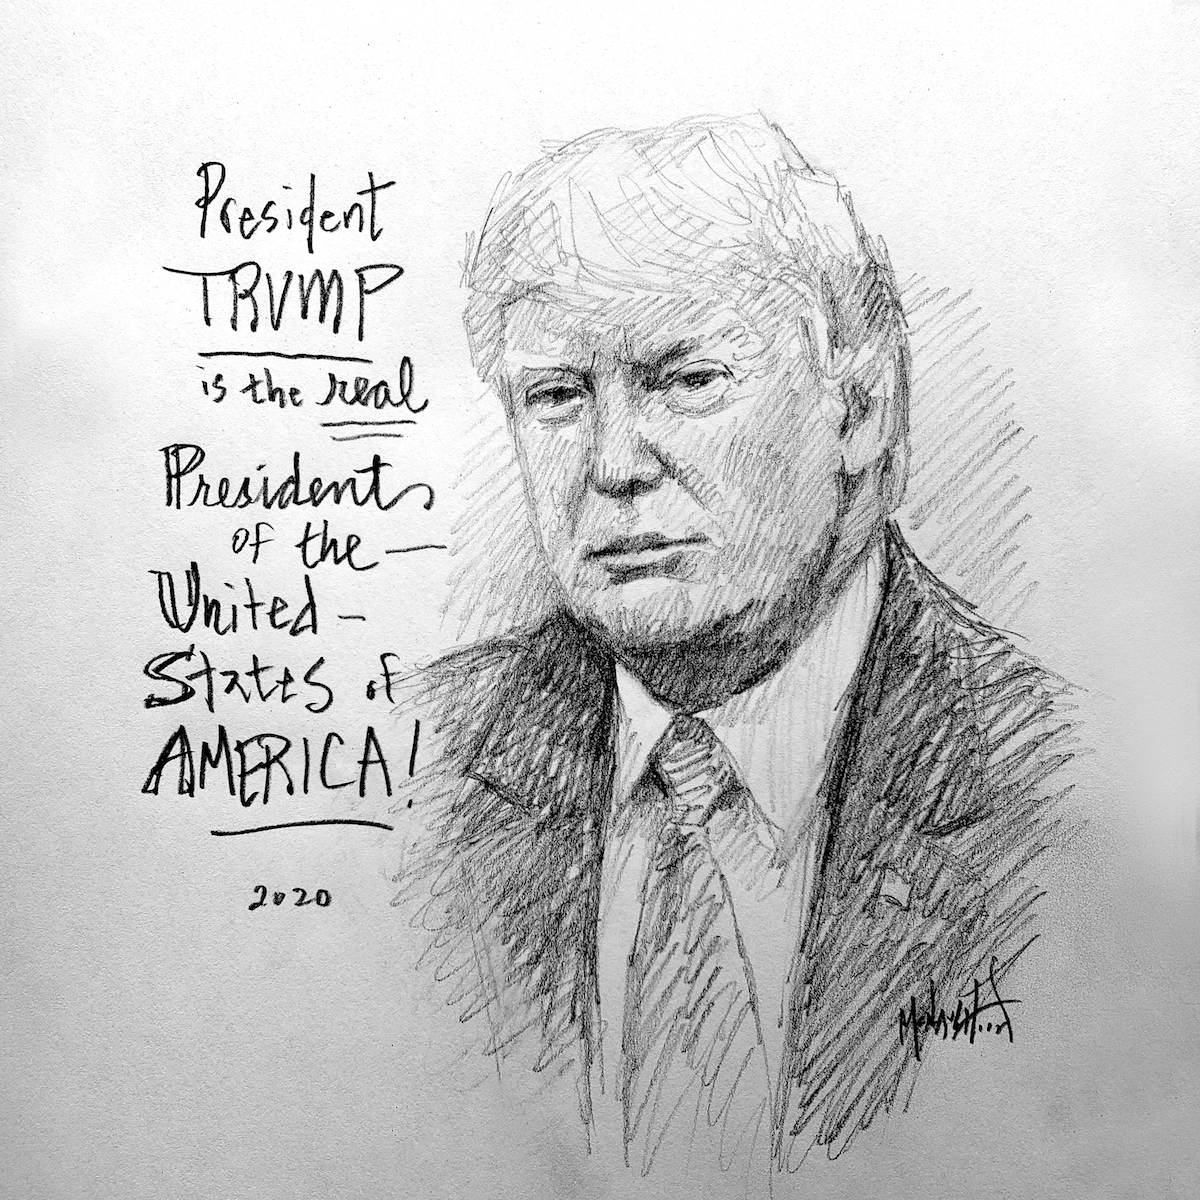 President
TRUMP
is the real
President
of the —
United -
States of
AMERICA!
2020
McNaughton